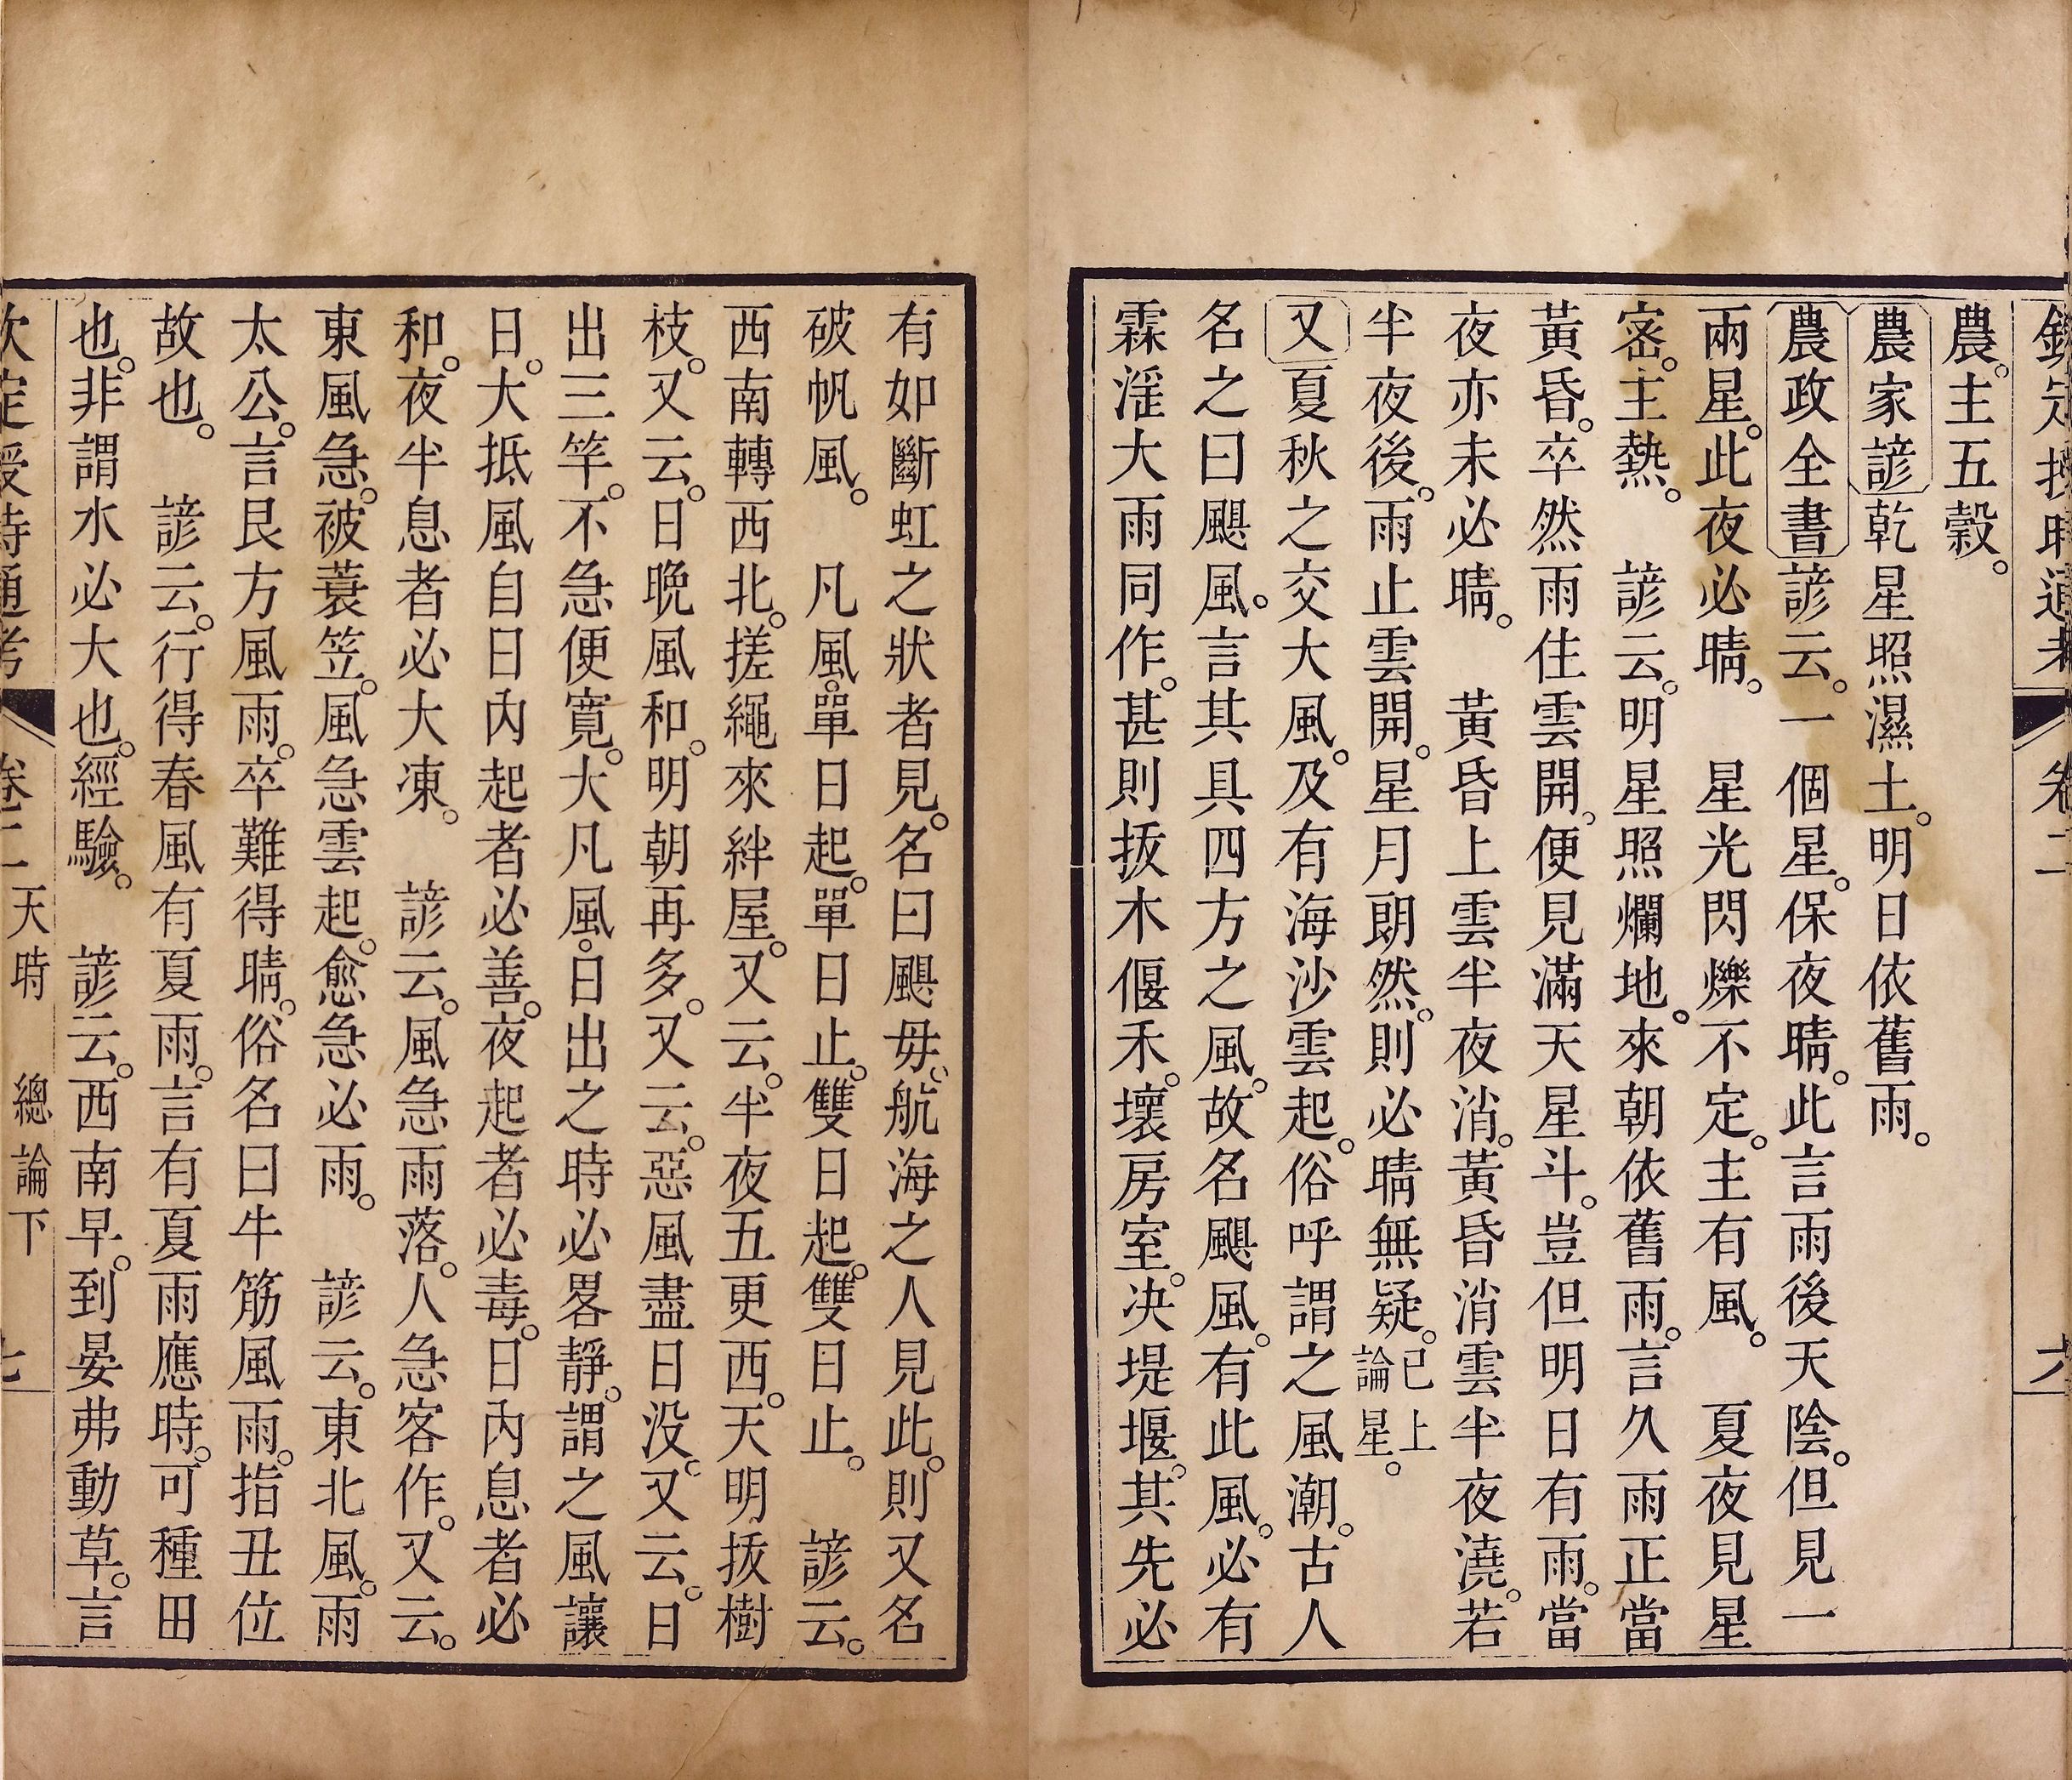 欽定授時通考 卷二 六
農。主五穀。
農家諺乾星照濕土。明日依舊雨。
農政全書諺云。一個星。保夜晴。此言雨後天陰。但見一
兩星。此夜必晴。 星光閃爍不定。主有風。 夏夜見星
宻。主熱。 諺云。明星照爛地。來朝依舊雨。言久雨正當
黃昏。卒然雨住雲開。便見滿天星斗。豈但明日有雨。當
夜亦未必晴。 黃昏上雲半夜消。黃昏消雲半夜澆。若
半夜後。雨止雲開。星月朗然。則必晴無疑。已上論星。
又夏秋之交大風。及有海沙雲起。俗呼謂之風潮。古人
名之曰颶風。言其具四方之風。故名颶風。有此風。必有
霖淫大雨同作。甚則拔木偃禾。壞房室。决堤堰。其先必
有如斷虹之狀者見。名曰颶毋。航海之人見此。則又名
破帆風。 凡風。單日起。單日止。雙日起。雙日止。 諺云。
西南轉西北。搓繩來絆屋。又云。半夜五更西。天明拔樹
枝。又云。日晚風和。明朝再多。又云。惡風盡日没。又云。日
出三竿。不急便寛。大凡風。日出之時必畧靜。謂之風讓
日。大抵風自日內起者必善。夜起者必毒。日內息者必
和。夜半息者必大凍。 諺云。風急雨落。人急客作。又云。
東風急。被蓑笠。風急雲起。愈急必雨。 諺云。東北風。雨
太公。言艮方風雨。卒難得晴。俗名曰牛筋風雨。指丑位
故也。 諺云。行得春風有夏雨。言有夏雨應時。可種田
也。非謂水必大也。經驗。 諺云。西南早。到晏弗動草。言
欽定授時通考 卷二 天時 總論下 七